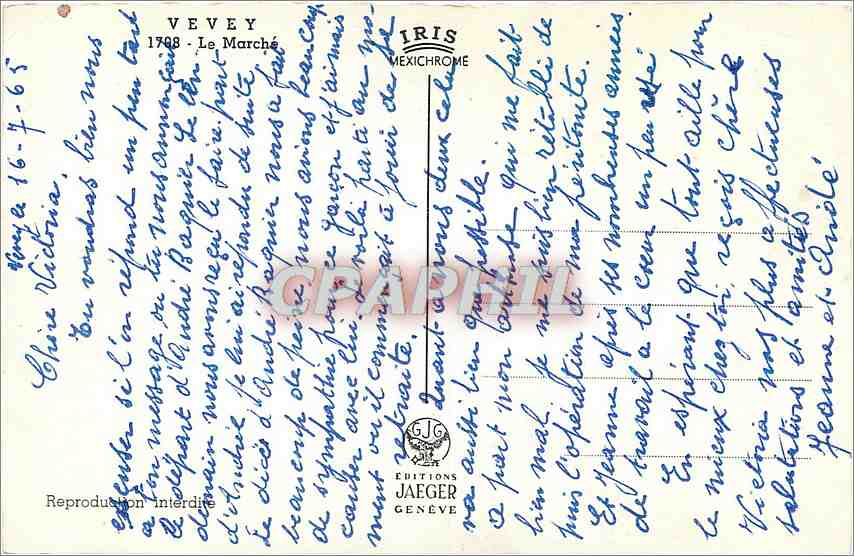 VEVEY
1798 - Le Marché
IRIS
MEXICHROME
Vevey le 16-7-65
Chère Victoria,
Tu voudras bien nous
excuser si l'on répond un peu tard
à ton message où tu nous annonçais
le départ d'André Bagnier. Le len
demain nous avons reçu le faire part
d'André, je lui ai répondu de suite.
Le décès d'André Bagnier nous a fait
beaucoup de peine, nous avions beaucoup
de sympathie pour ce garçon et j'aimais
causer avec lui, le voilà parti au mo-
ment où il commençait à jouir de sa
retraite.
Quant à nous deux cela
va aussi bien que possible.
à part mon qui me fait
bien mal, je me suis bien rétabli de
puis l'opération de ma péritonite.
Et Jeanne après ses nombreuses années
de travail a le cœur un peu usé
En espérant que tout aille pour
le mieux chez toi, reçois chère
Victoria nos plus affectueuses
salutations et amitiés
Jeanne et André
CPAPHIL
GJG
EDITIONS
JAEGER
GENÈVE
Reproduction interdite